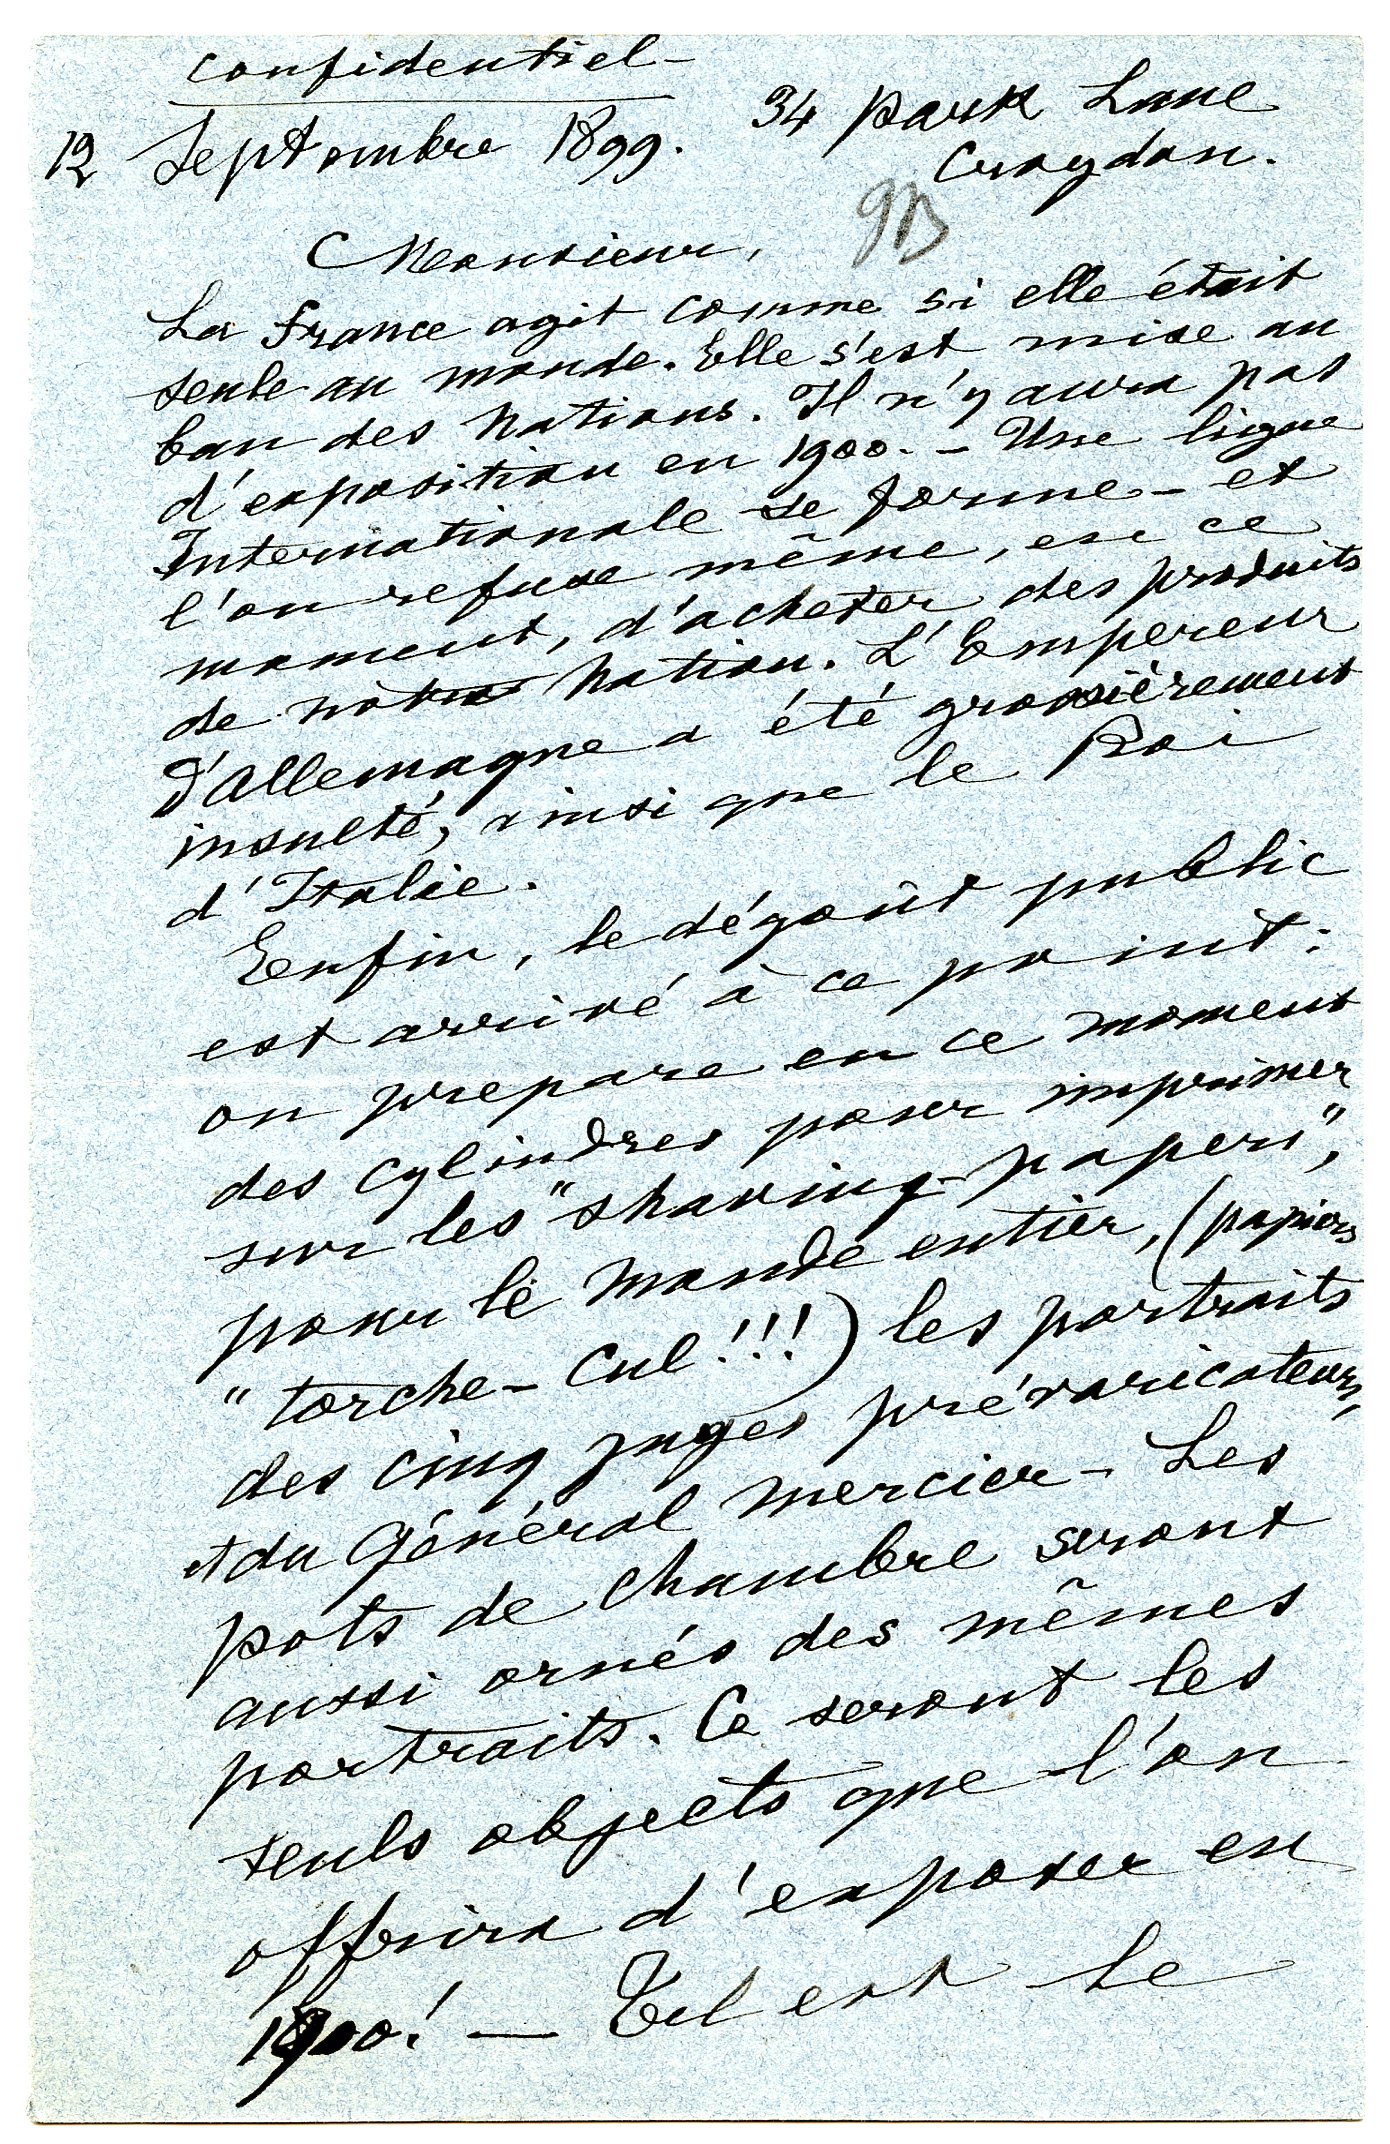 Confidentiel -
34 Park Lane
12 Septembre 1899.
Croydon.
Monsieur,
La France agit comme si elle était
seule au monde. Elle s'est mise au
ban des Nations. Il n'y aura pas
d'exposition en 1900. - Une ligue
Internationale se forme - et
l'on refuse même, en ce
moment, d'acheter des produits
de notre Nation. L'Empereur
d'Allemagne a été grossièrement
insulté, ainsi que le Roi
d'Italie.
Enfin, le dégoût public
est arrivé à ce point:
on prepare en ce moment
des cylindres pour imprimer
sur les "shaving-papers",
pour le monde entier, (papiers
"torche-cul!!!) les portraits
des cinq juges prévaricateurs,
et du Général Mercier - Les
pots de chambre seront
aussi ornés des mêmes
portraits. Ce seront les
seuls objets que l'on
offrira d'exposer en
1900! - Tel est le